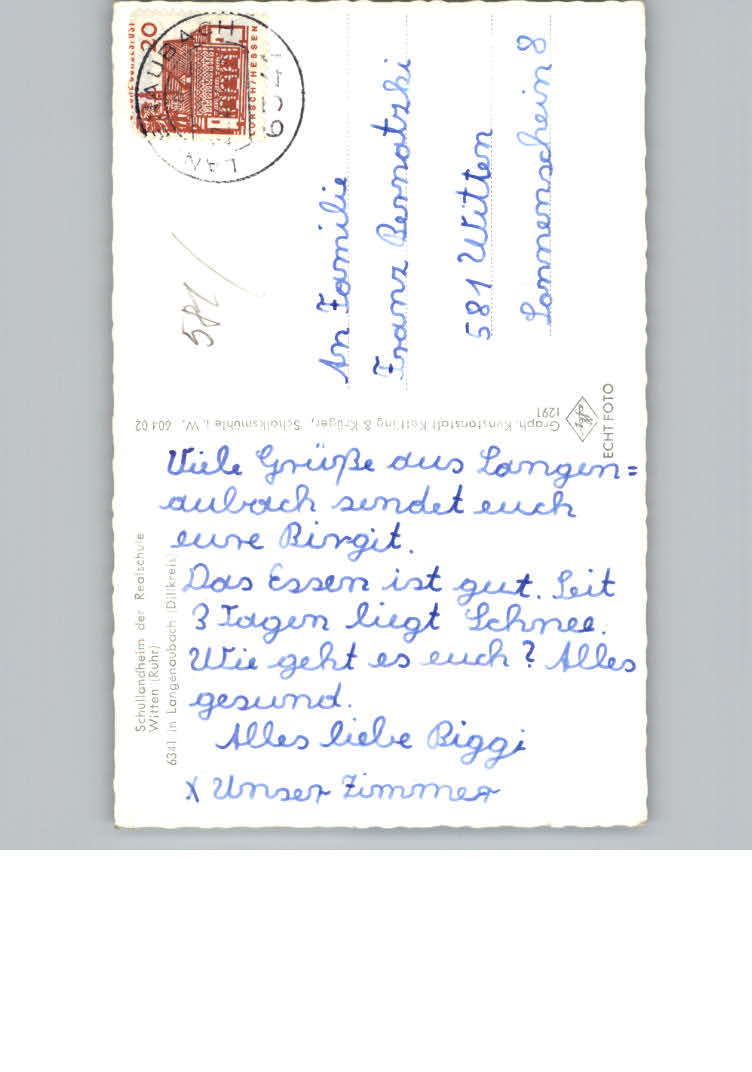 Viele Grüße aus Langen=
aubach sendet euch
eure Birgit.
Das Essen ist gut. Seit
3 Tagen liegt Schnee.
Wie geht es euch? Alles
gesund.
Alles liebe Biggi
x Unser Zimmer
An Familie
Franz Bernatzki
581 Witten
Sonnenschein 8
581
Schullandheim der Realschule
Witten (Ruhr)
6341 in Langenaubach (Dillkreis)
Graph. Kunstanstalt Kettling & Krüger, Schalksmühle i. W. 604 02
1291
ECHT FOTO
20
LORSCH/HESSEN
6341